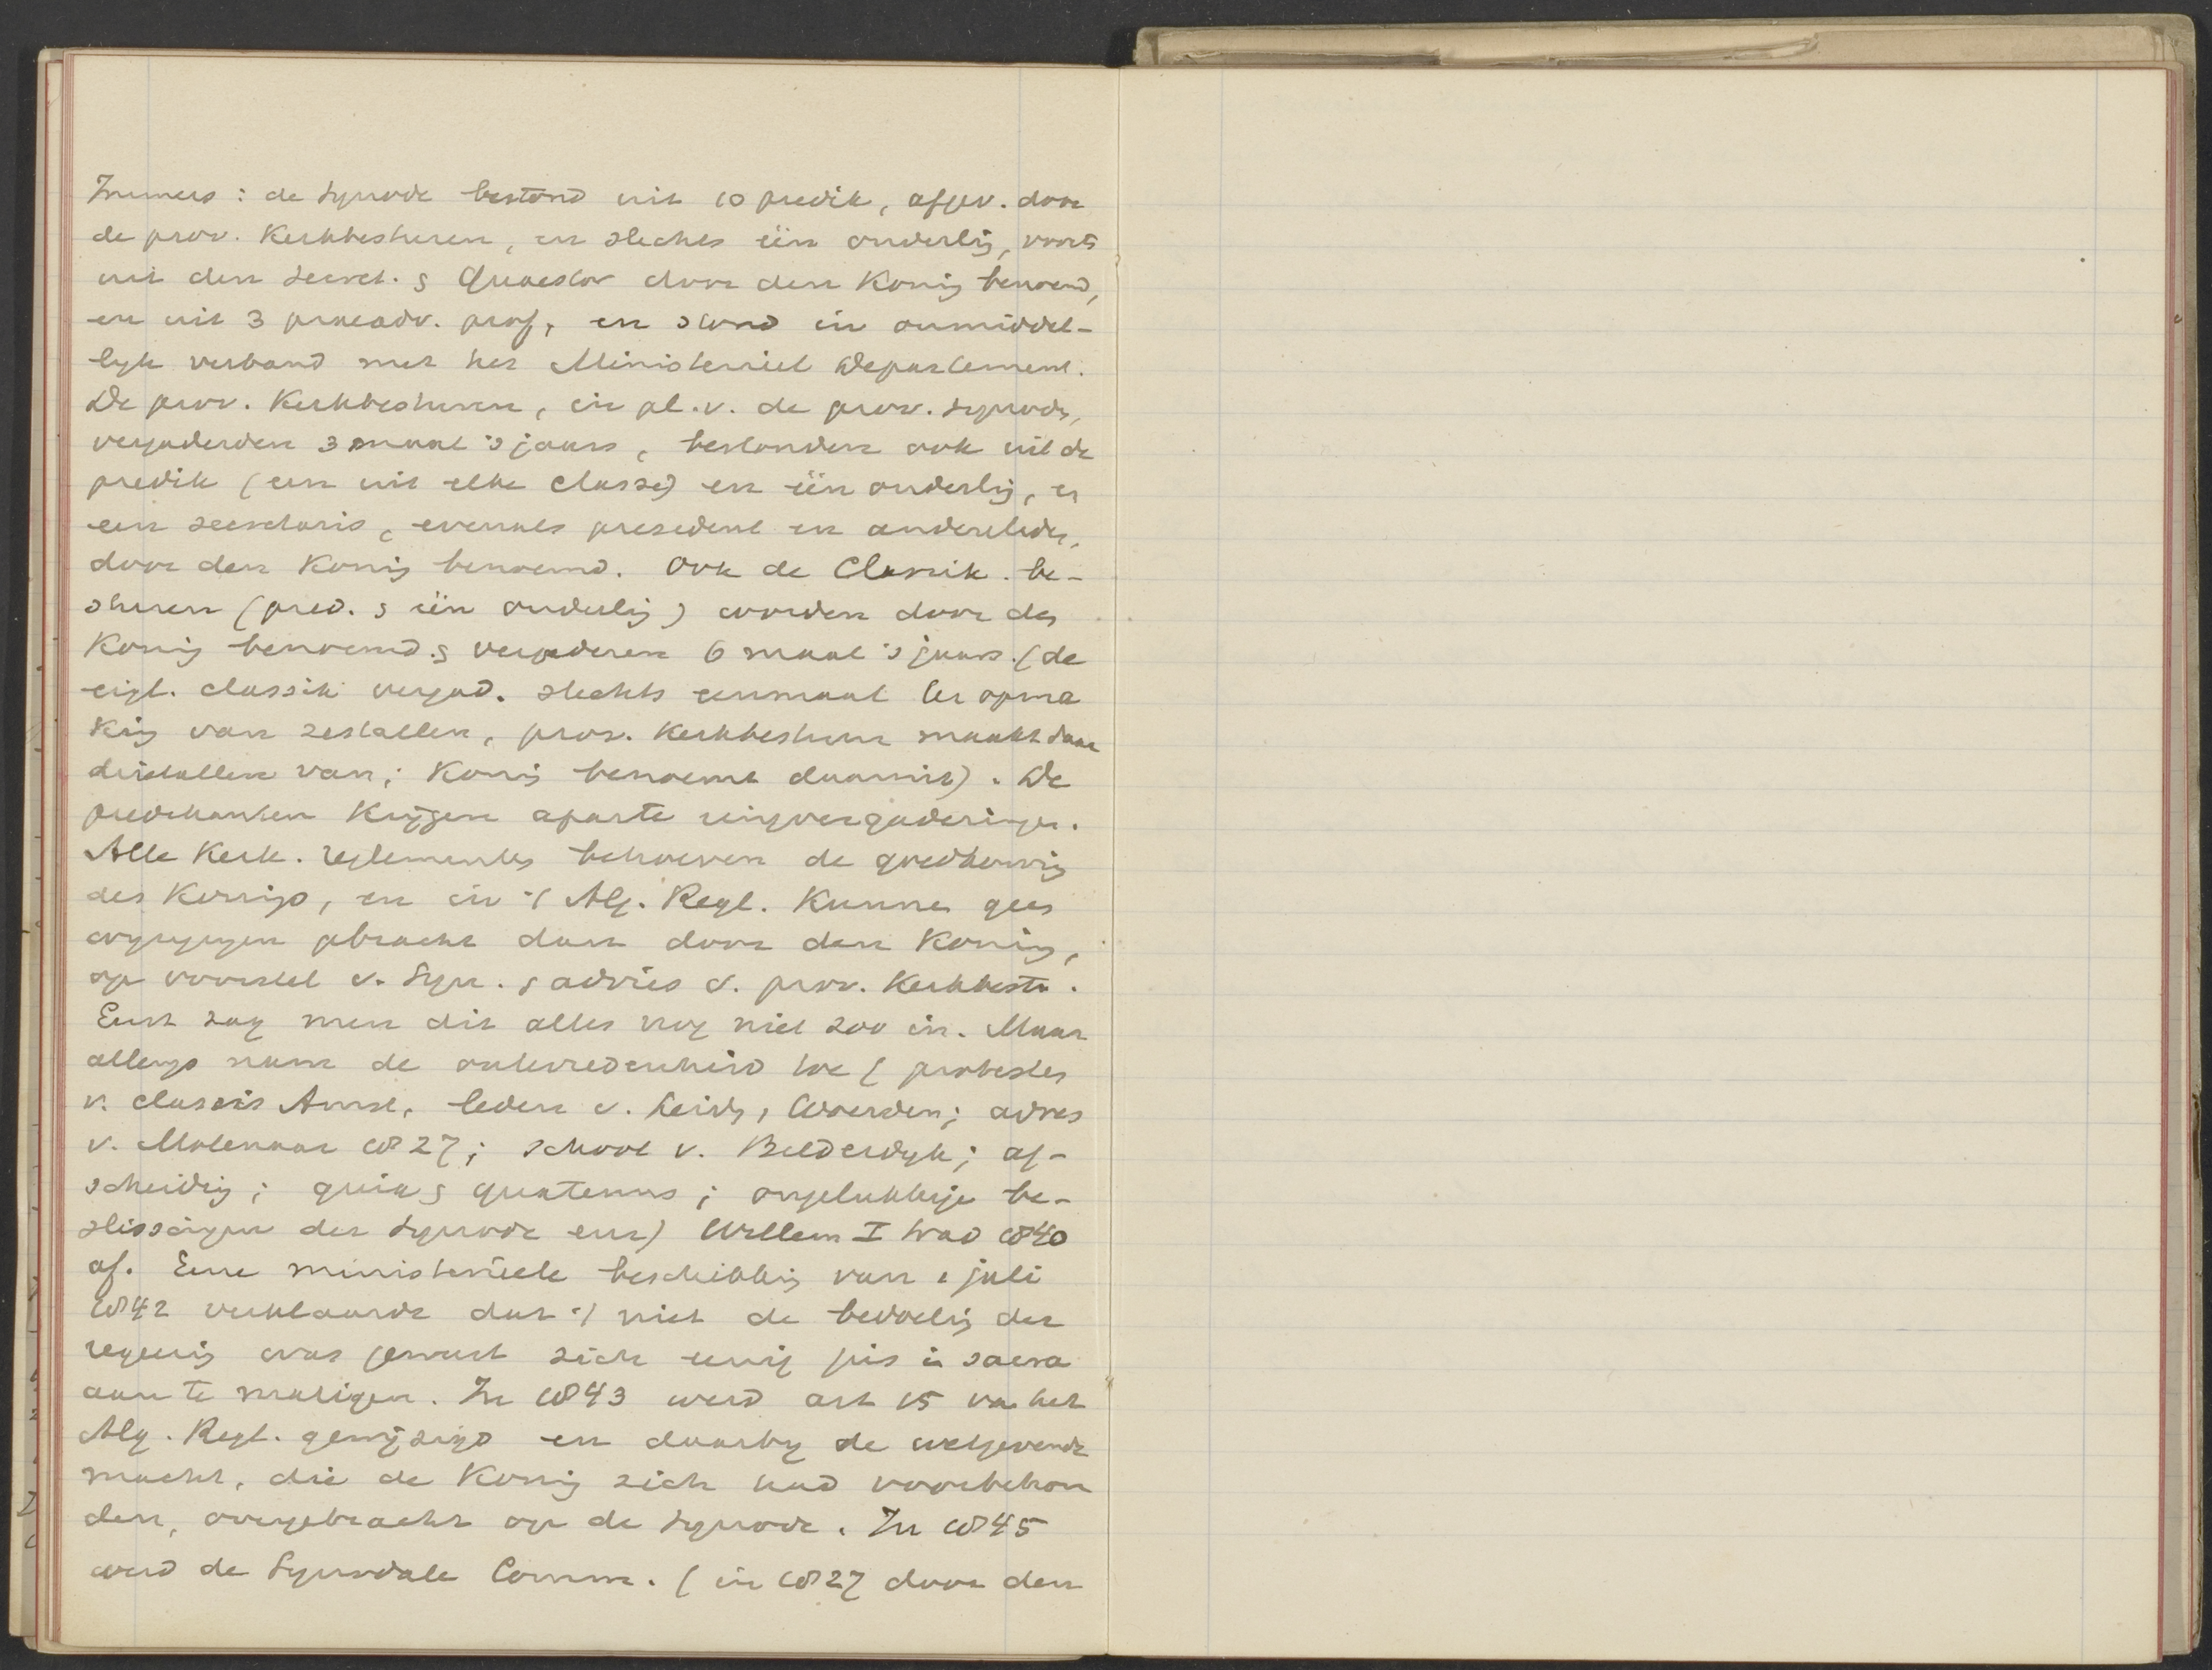 Immers: de Synode bestond uit 10 predik, afgev. door
de prov. Kerkbesturen, en slechts één ouderlig, voorts
uit den secret. & Quaestor door den Konig benoemd,
en uit 3 praeadv. prof, en stond in onmiddel-
lyk verband met het Ministeriëel Departement.
De prov. Kerkbesturen, in pl. v. de prov. Synode,
vergaderden 3 maal 's jaars, bestonden ook uit de
predik (een uit elke classe) en één ouderlig, en
een secretaris, evenals president en andere leden,
door den Konig benoemd. Ook de Classik. be-
sturen (pred. & één ouderlig) worden door den
Konig benoemd & vergaderen 6 maal 's jaars. (de
eigl. classik vergad. slechts eenmaal ter opma
kig van zestallen, prov. Kerkbestuur maakt daar
drietallen van; Konig benoemt daaruit). De
predikanten krijgen aparte ringvergaderingen.
Alle Kerk. reglementen behoeven de goedkeurig
des Konigs, en in 't Alg. Regl. Kunnen geen
wyzigigen gebracht dan door den Konig,
op voorstel v. Syn. & advies v. prov. Kerkbest.
Eerst zag men dit alles nog niet zoo in. Maar
allengs nam de ontevredenheid toe (protesten
v. classis Amst, leden v. Leidn, Woerden; adres
v. Molenaar 1827; school v. Bilderdyk; af-
scheidig; quia & quatenus; ongelukkige be-
slissigen der Synode enz) Willem I trad 1840
af. Eene ministeriëele beschikkig van 1 juli
1842 verklaarde dat 't niet de bedoelig der
regeerig was geweest zich eenig jus in sacra
aan te matigen. In 1843 werd art 15 van het
Alg. Regl. gewijzigd en daarby de wetgevende
macht, die de Konig zich had voorbehou
den, overgebracht op de Synode. In 1845
werd de Synodale Comm. (in 1827 door den